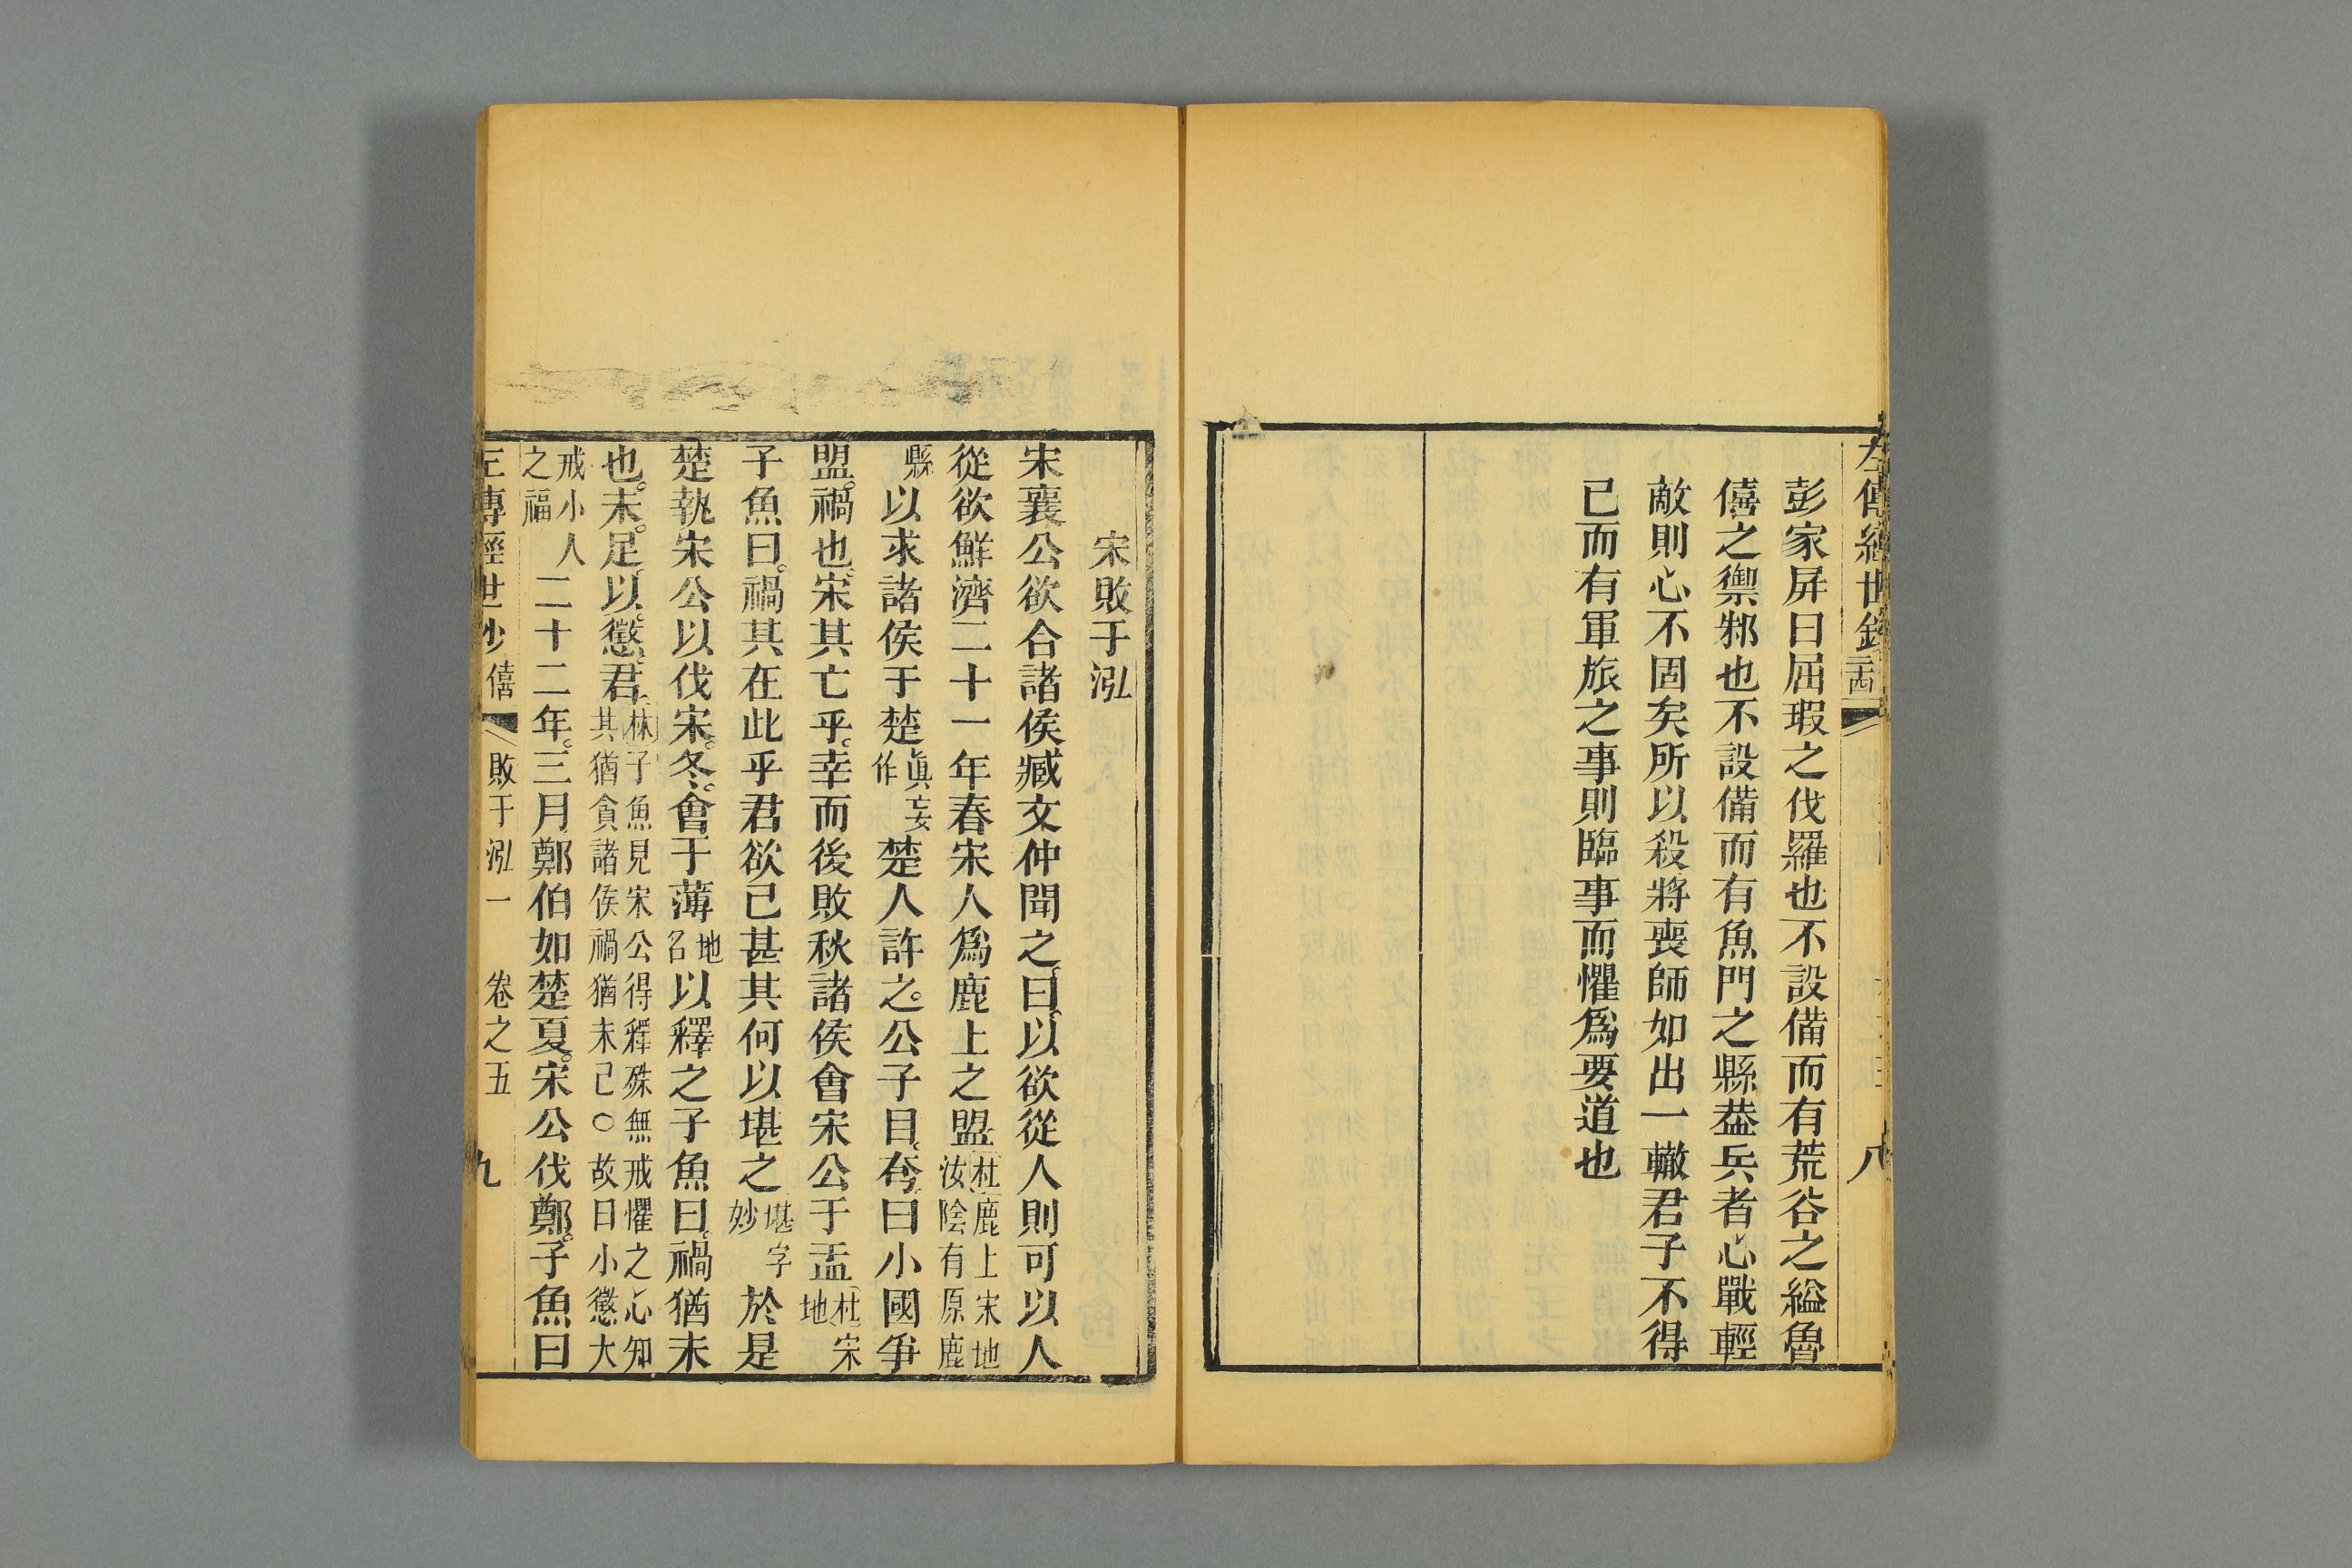 左傳經世鈔
八
彭家屏曰屈瑕之伐羅也不設備而有荒谷之縊魯
僖之禦邾也不設備而有魚門之縣葢兵者心戰輕
敵則心不固矣所以殺將喪師如出一轍君子不得
已而有軍旅之事則臨事而懼爲要道也
宋敗于泓
宋襄公欲合諸侯臧文仲聞之曰以欲從人則可以人
從欲鮮濟二十一年春宋人爲鹿上之盟杜鹿上宋地汝陰有原鹿
縣以求諸侯于楚眞妄作楚人許之公子目夷曰小國爭
盟禍也宋其亡乎幸而後敗秋諸侯會宋公于盂杜宋地
子魚曰禍其在此乎君欲已甚其何以堪之堪字妙於是
楚執宋公以伐宋冬會于薄地名以釋之子魚曰禍猶未
也未足以懲君林子魚見宋公得釋殊無戒懼之心知其猶貪諸侯禍猶未已○故曰小懲大
戒小人之福二十二年三月鄭伯如楚夏宋公伐鄭子魚曰
左傳經世鈔 僖 敗于泓一 卷之五 九